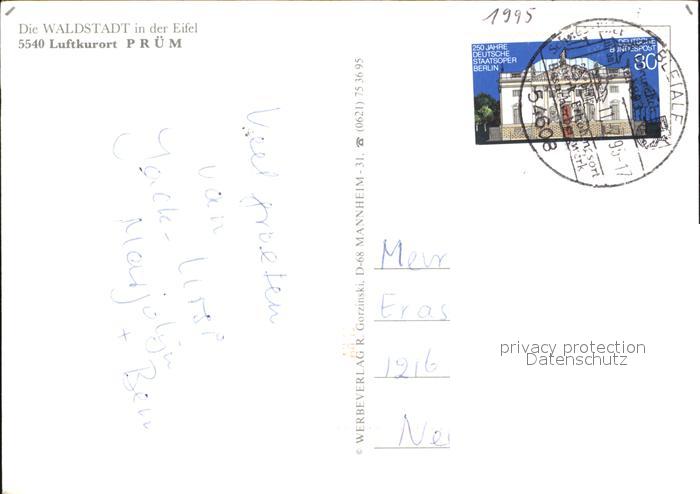 Die WALDSTADT in der Eifel
5540 Luftkurort PRÜM
1995
250 JAHRE
DEUTSCHE
STAATSOPER
BERLIN
DEUTSCHE
BUNDESPOST
80
54608
BLEIALF
Veel groeten
van
Jack-
Marjolijn
+ Ben
© WERBEVERLAG R. Gorzinski, D-68 MANNHEIM-31, ☎ (0621) 75 36 95
Mevr
Eras
1216
Ne
privacy protection
Datenschutz